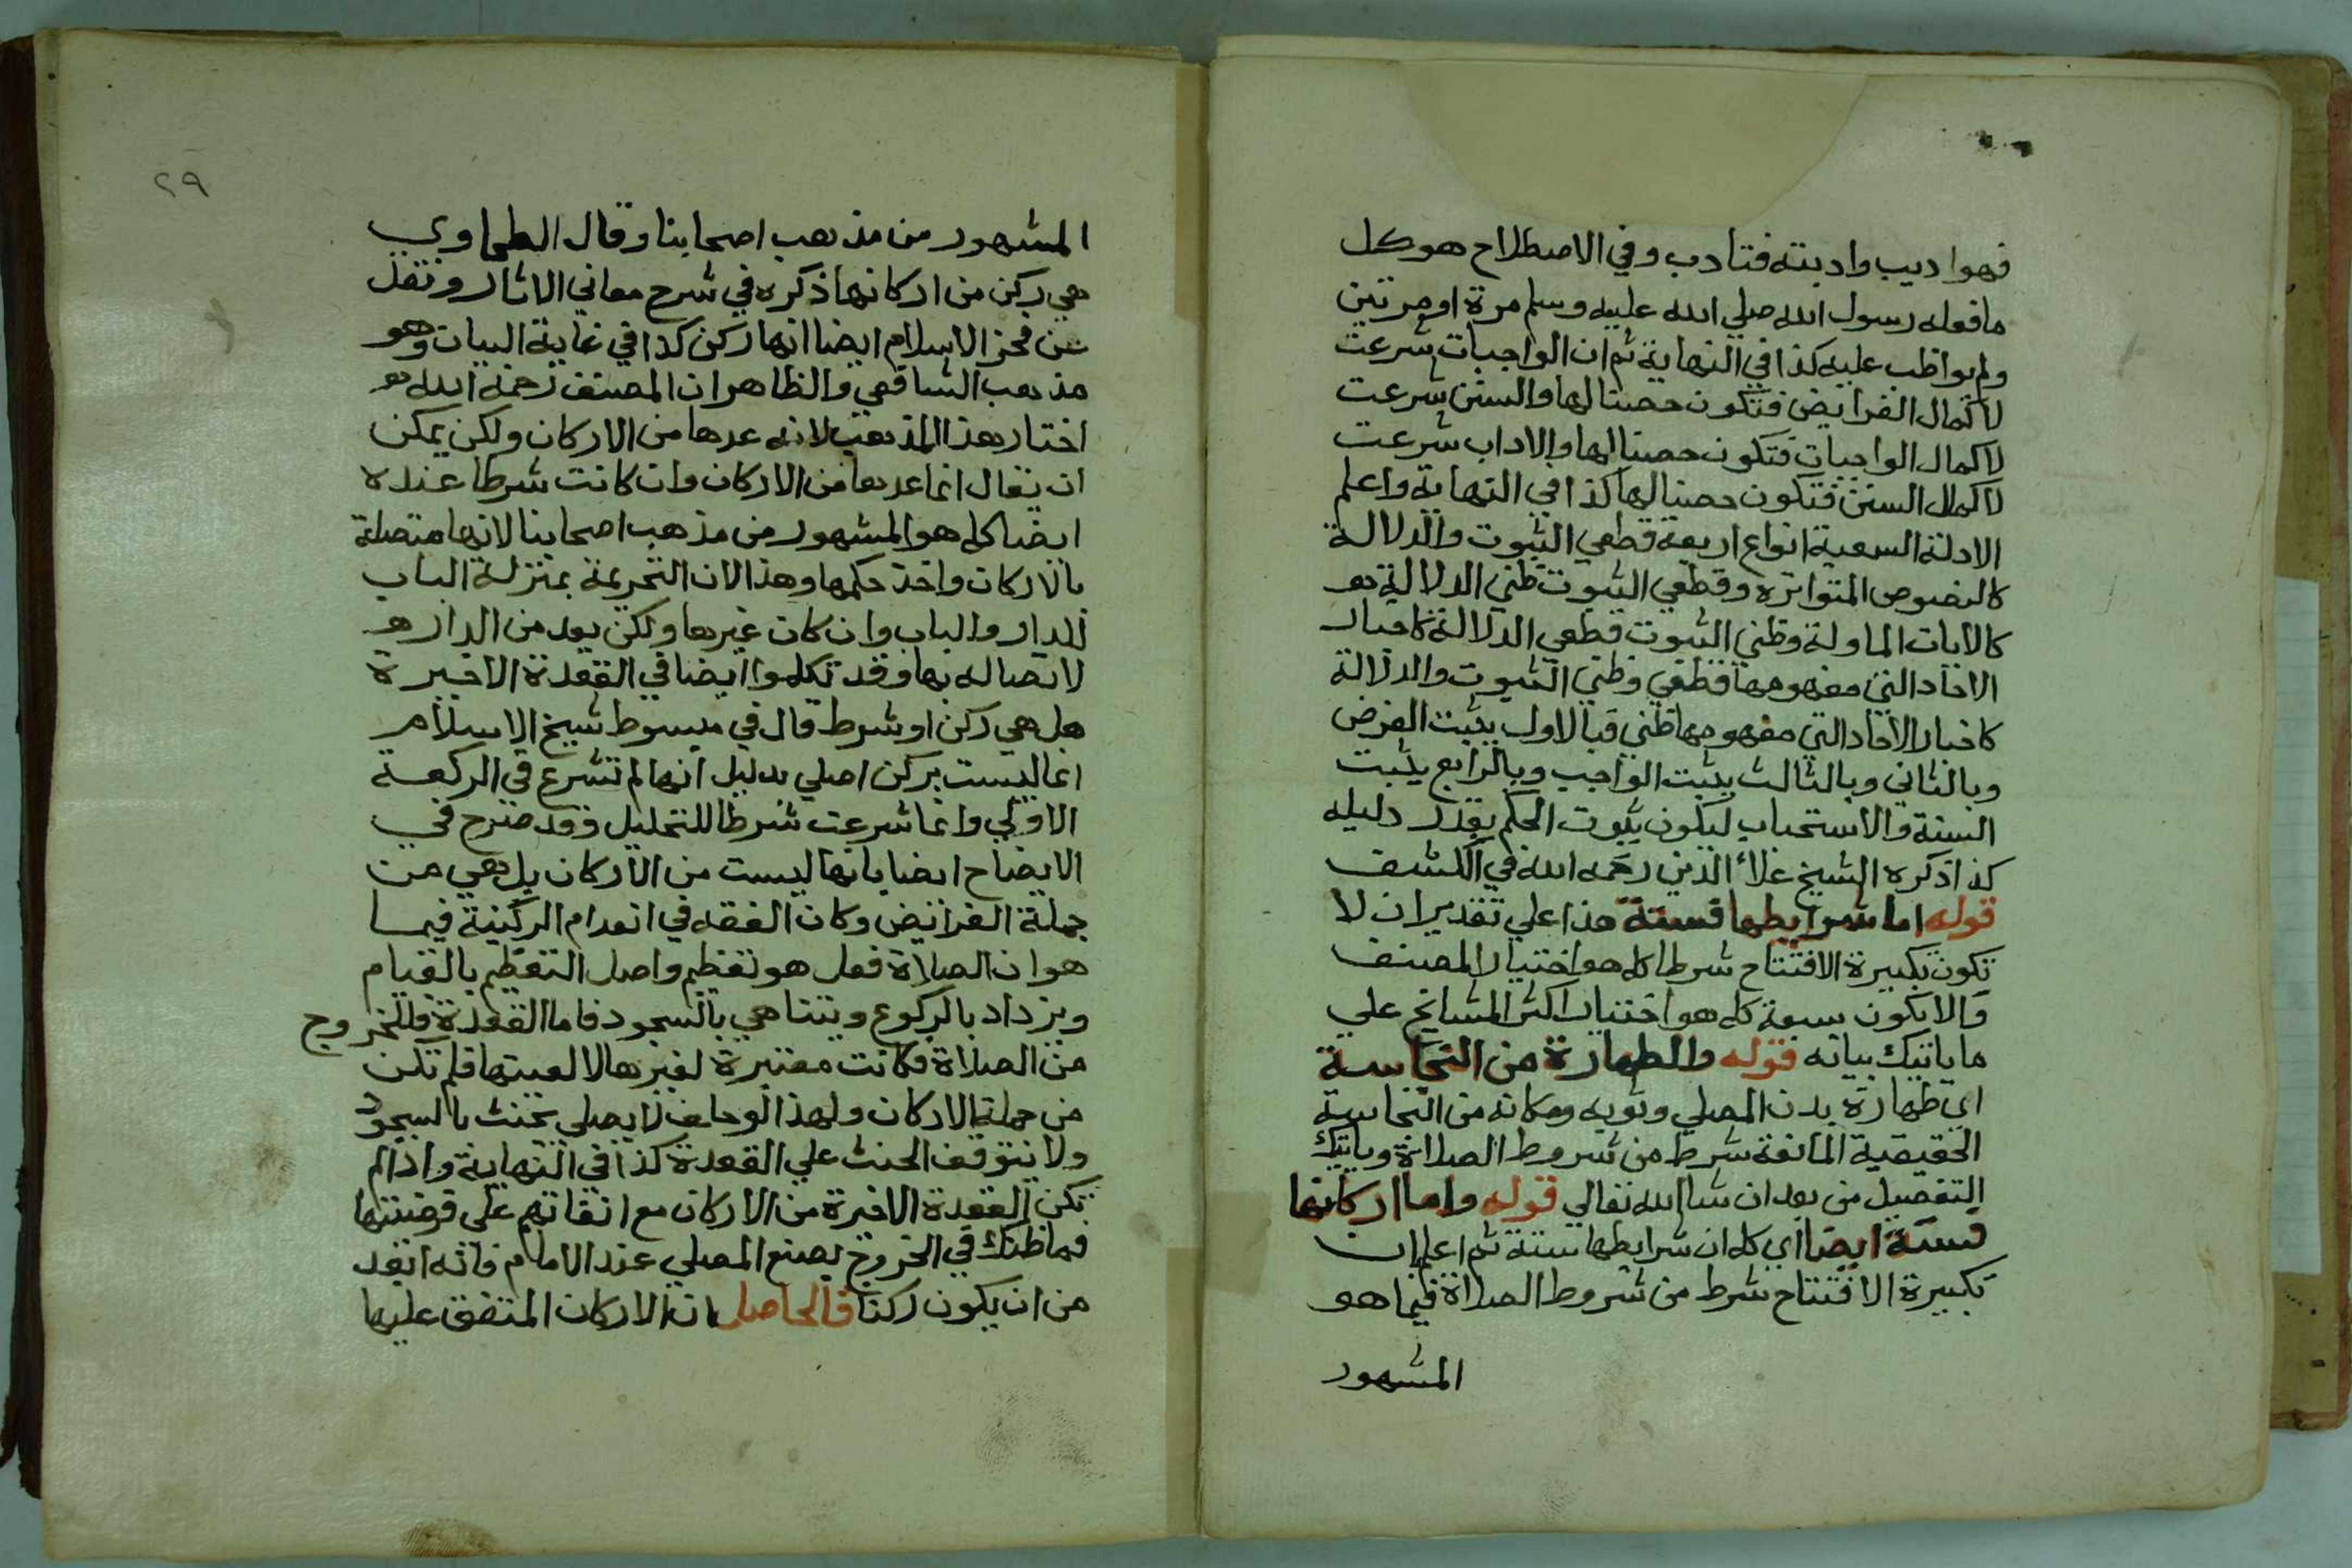 فهو اديب وادبته فتادب وفي الاصطلاح هو كل
ما فعله رسول الله صلي الله عليه وسلم مرة او مرتين
ولم يواظب عليه كذا في النهاية ثم ان الواجبات شرعت
لاكمال الفرايض فتكون حصنا لها والسنن شرعت
لاكمال الواجبات فتكون حصنا لها والاداب شرعت
لاكمال السنن فتكون حصنا لها كذا في النهاية واعلم
الادلة السمعية انواع اربعة قطعي الثبوت والدلالة
كالنصوص المتواتره وقطعي الثبوت ظني الدلالة
كالايات الماولة وظني الثبوت قطعي الدلالة كاخبار
الاحاد التي مفهومها قطعي وظني الثبوت والدلالة
كاخبار الاحاد التي مفهومها ظني فبالاول يثبت الفرض
وبالثاني وبالثالث يثبت الواجب وبالرابع يثبت
السنة والاستحباب ليكون ثبوت الحكم بقدر دليله
كذا ذكره الشيخ علاء الدين رحمه الله في الكشف
قوله اما شرايطها فستة هذا علي تقدير ان لا
تكون تكبيرة الافتتاح شرطا كله هو اختيار المصنف
والا يكون سبعة كله هو اختيار اكثر المشايخ علي
ما ياتيك بيانه قوله والطهارة من النجاسة
اي طهارة بدن المصلي وثوبه ومكانه من النجاسة
الحقيقية المانعة شرط من شروط الصلاة وياتيك
التفصيل من بعد ان شا الله تعالي قوله واما اركانها
فستة ايضا اي كله ان شرايطها ستة ثم اعلم ان
تكبيرة الافتتاح شرط من شروط الصلاة فيما هو
المشهور
٢٩
المشهور من مذهب اصحابنا وقال الطحاوي
هي ركن من اركانها ذكره في شرح معاني الاثار ونقل
عن فخر الاسلام ايضا انها ركن كذا في غاية البيان وهو
مذهب الشافعي والظاهر ان المصنف رحمه الله
اختار هذا المذهب لانه عدها من الاركان ولكن يمكن
ان يقال انما عدها من الاركان وان كانت شرطا عنده
ايضا كله هو المشهور من مذهب اصحابنا لانها متصلة
بالاركان واخذ حكمها وهذا لان التحريمة بمنزلة الباب
للدار والباب وان كان غيرها ولكن يعد من الدار
لاتصاله بها وقد تكلموا ايضا في القعدة الاخيرة
هل هي ركن او شرط قال في مبسوط شيخ الاسلام
انها ليست بركن اصلي بدليل انها لم تشرع في الركعة
الاولي وانما شرعت شرطا للتحليل وقد صرح في
الايضاح ايضا بانها ليست من الاركان بل هي من
جملة الفرايض وكان الفقه في انعدام الركنية فيما
هو ان الصلاة فعل هو تعظيم واصل التعظيم بالقيام
ويزداد بالركوع ويتناهي بالسجود فاما القعدة فللخروج
من الصلاة فكانت معتبرة لغيرها لا لعينها فلم تكن
من جملة الاركان ولهذا لو حلف لا يصلي يحنث بالسجود
ولا يتوقف الحنث علي القعدة كذا في النهاية واذا لم
تكن القعدة الاخيرة من الاركان مع اتفاقهم علي فرضيتها
فما ظنك في الخروج بصنع المصلي عند الامام فانه ابعد
من ان يكون ركنا فالحاصل ان الاركان المتفق عليها